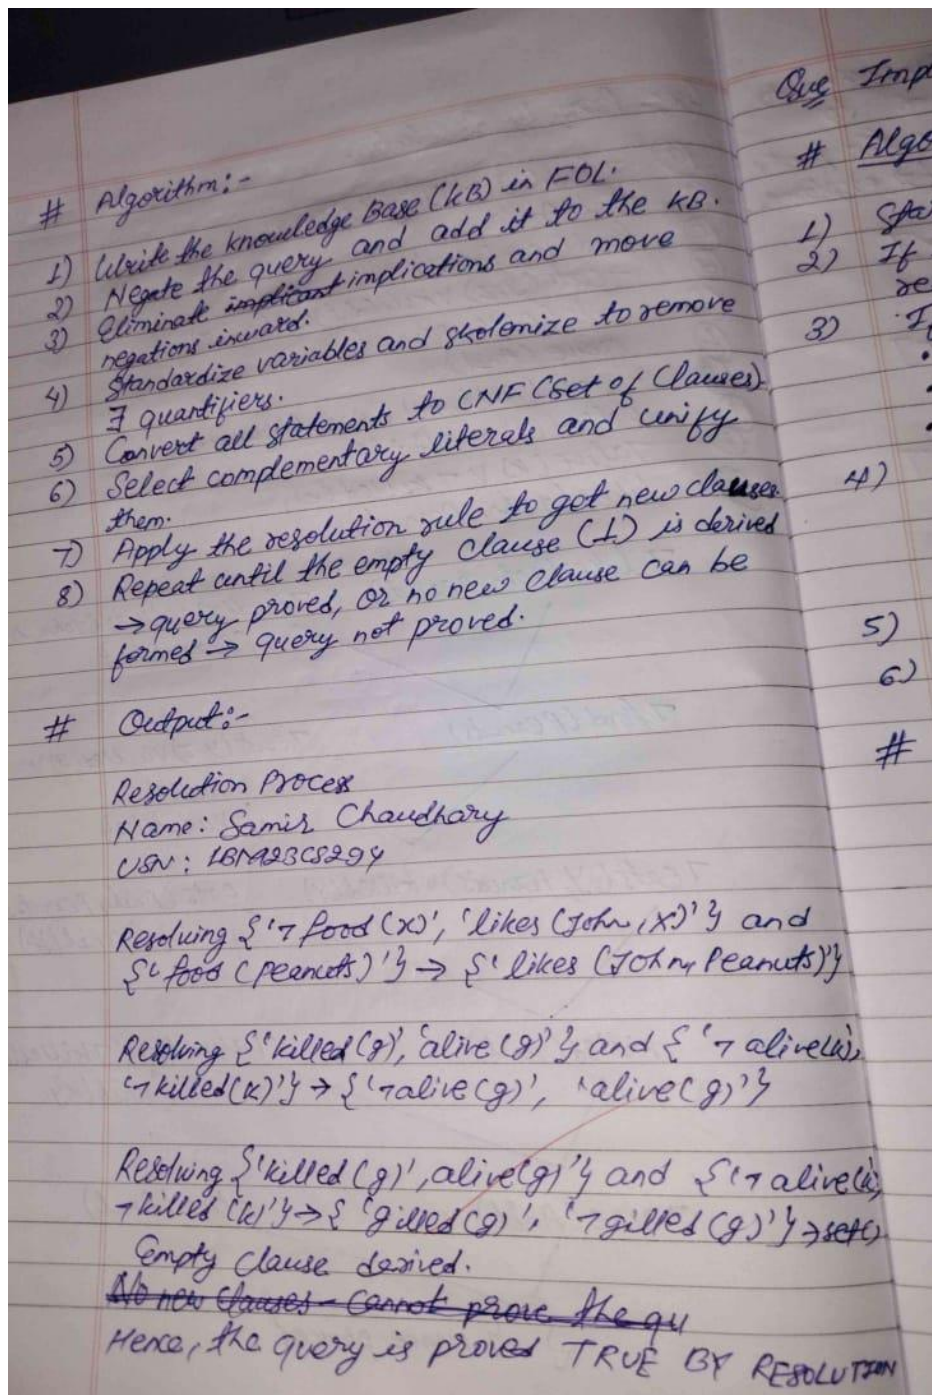 # Algorithm:-
1) Write the knowledge Base (KB) in FOL.
2) Negate the query and add it to the KB.
3) Eliminate implicant implications and move
negations inward.
4) Standardize variables and skolemize to remove
∃ quantifiers.
5) Convert all statements to CNF (Set of Clauses).
6) Select complementary literals and unify
them.
7) Apply the resolution rule to get new clauses.
8) Repeat until the empty clause (⊥) is derived
→ query proved, or no new clause can be
formed → query not proved.
# Output:-
Resolution Process
Name: Samir Chaudhary
USN: 1BM23CS294
Resolving {'¬food(x)', 'likes (John, X)'} and
{'food (peanuts)'} → {'likes (John, Peanuts)'}
Resolving {'killed(g)', 'alive(g)'} and {'¬alive(k),
'¬killed(k)'} → {'¬alive(g)', 'alive(g)'}
Resolving {'killed(g)', alive(g)'} and {'¬alive(k),
¬killed (k)'} → {'gilled(g)', '¬gilled(g)'} → set()
Empty Clause derived.
No new Clauses - Cannot prove the qu
Hence, the query is proved TRUE BY RESOLUTION
Que Impl
# Algo
1) Sta
2) If
re
3) I
4)
5)
6)
#